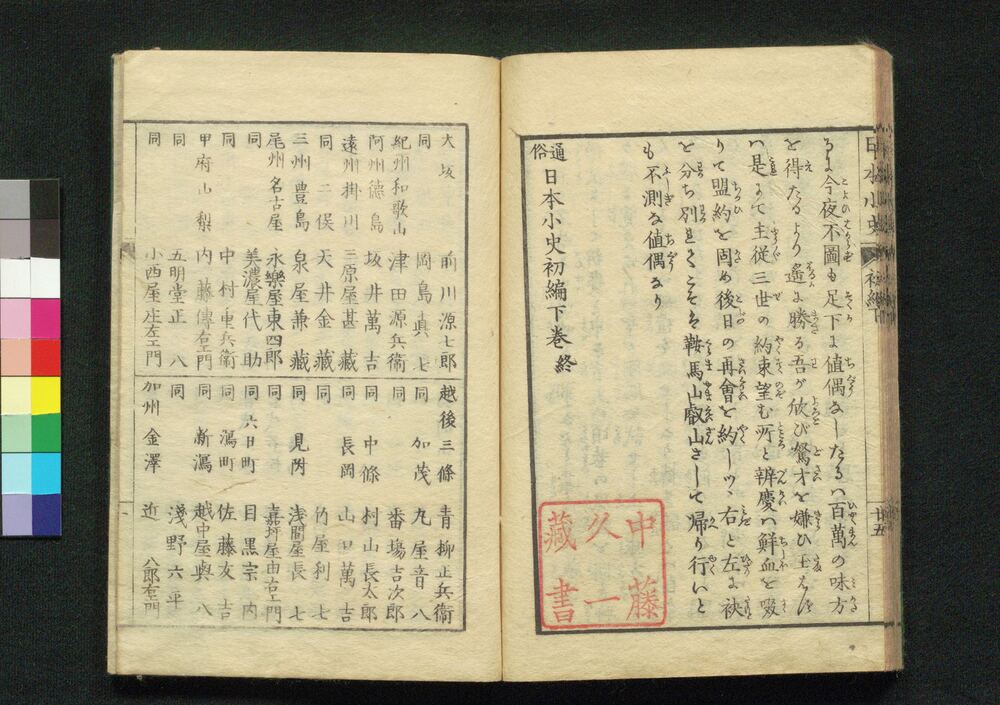 日本小史 初編下 廿五
るに今夜不圖も足下に値偶なしたるハ百萬の味方
を得たるより遥に勝る吾が歓び駑才を嫌ひ玉はずバ
是にて主従三世の約束望む所と辨慶ハ鮮血を啜
りて盟約を固め後日の再會を約しツヽ右と左に袂
を分ち別れてこそは鞍馬山叡山さして帰り行いと
も不測な値偶なり
通俗 日本小史初編下巻終
中藤
久一
藏書
大坂 前川源七郎
同 岡島真七
紀州和歌山 津田源兵衛
阿州徳島 坂井萬吉
遠州掛川 三原屋甚藏
同二俣 天井金藏
三州豊島 泉屋兼藏
尾州名古屋 永樂屋東四郎
同 美濃屋代助
同 中村重兵衛
甲府山梨 内藤傳右エ門
同 五明堂正八
同 小西屋庄左エ門
越後三條 青柳正兵衛
同 加茂 丸屋音八
同 中條 番場吉次郎
同 村山長太郎
同 長岡 山口萬吉
同 竹屋利七
同 見附 浅間屋長七
同 嘉坪屋由右エ門
同 六日町 目黒宗内
同 瀉町 佐藤友吉
同 新瀉 越中屋與八
同 淺野六平
加州金澤 近 八郎右エ門